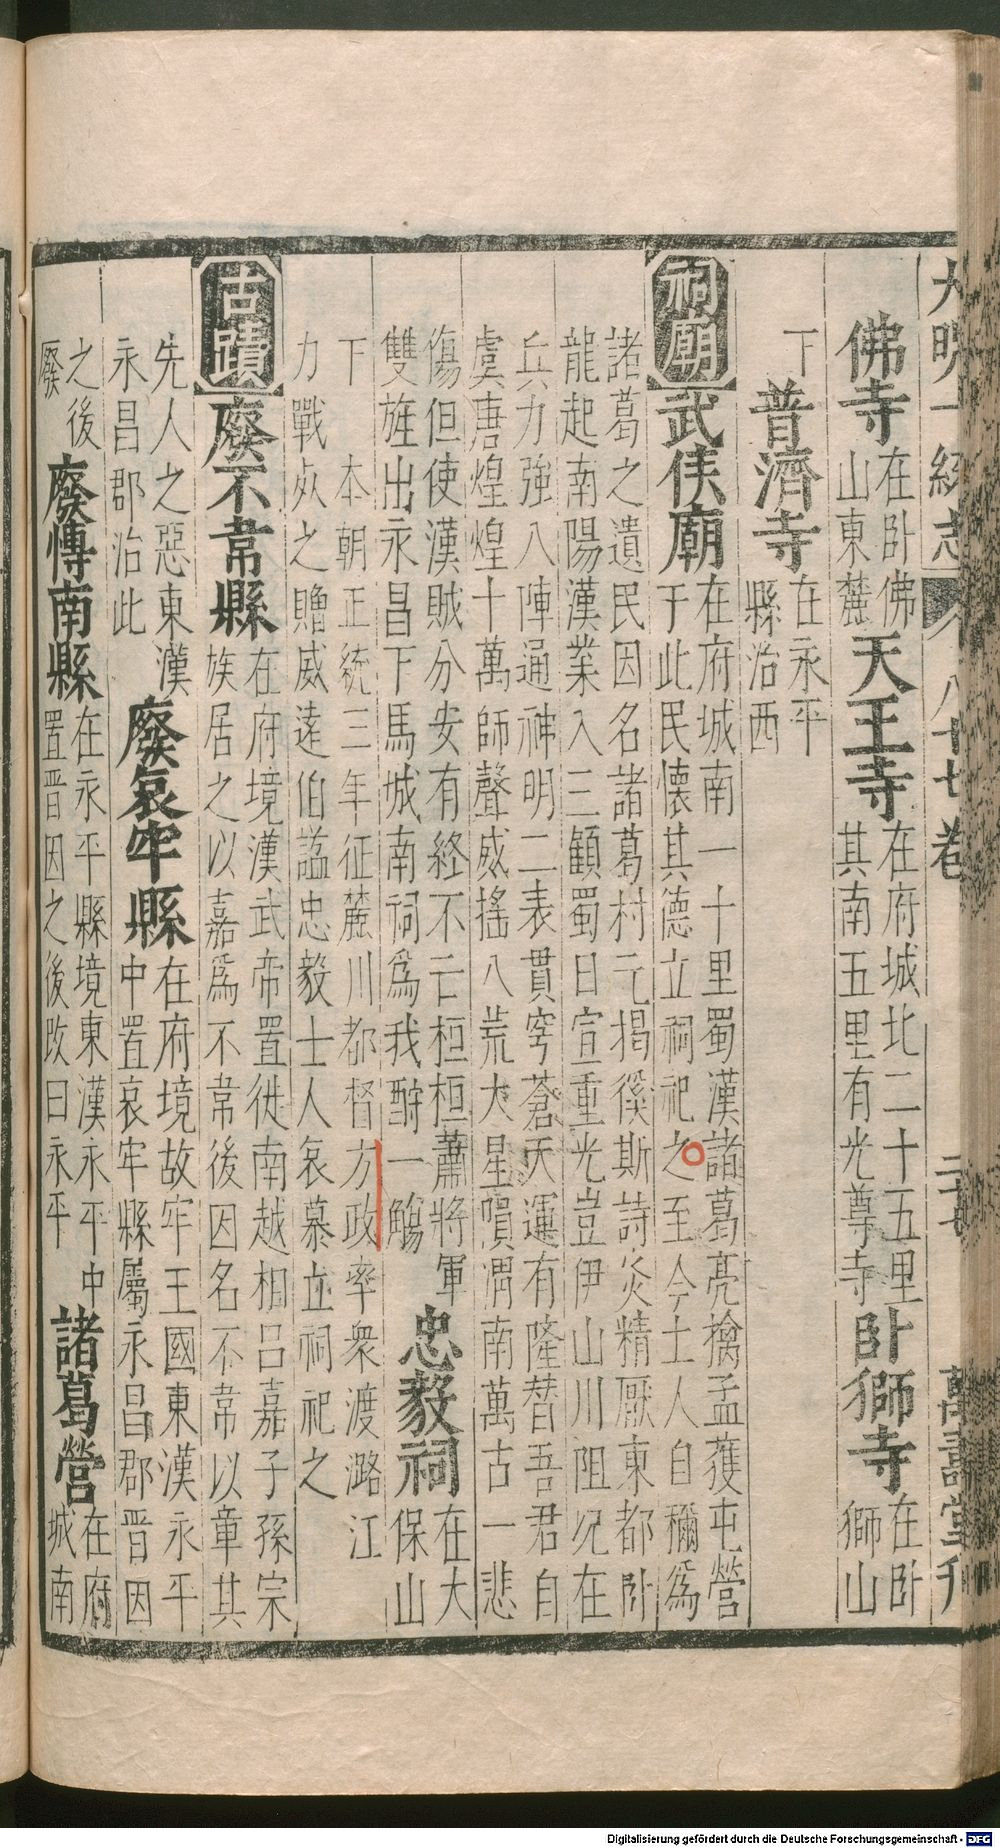 大明一統志 八十七卷 二十七 萬壽堂刊
佛寺
在卧佛
山東麓
天王寺
在府城北二十五里
其南五里有光尊寺
卧獅寺
在卧
獅山
下
普濟寺
在永平
縣治西
祠廟
武侯廟
在府城南一十里蜀漢諸葛亮擒孟獲屯營
于此民懷其德立祠祀之至今土人自稱爲
諸葛之遺民因名諸葛村元揭徯斯詩炎精厭東都卧
龍起南陽漢業入三顧蜀日宣重光豈伊山川阻况在
兵力強入陣通神明二表貫穹蒼天運有隆替吾君自
虞唐煌煌十萬師聲威搖八荒大星隕渭南萬古一悲
傷但使漢賊分安有終不亡桓桓蕭將軍
雙旌出永昌下馬城南祠爲我酹一觴
忠毅祠
在大
保山
下 本朝正統三年征麓川都督方政率衆渡潞江
力戰死之贈威遠伯謚忠毅士人哀慕立祠祀之
古蹟
廢不韋縣
在府境漢武帝置徙南越相呂嘉子孫宗
族居之以嘉爲不韋後因名不韋以章其
先人之惡東漢
永昌郡治此
廢哀牢縣
在府境故牢王國東漢永平
中置哀牢縣屬永昌郡晉因
之後
廢
廢博南縣
在永平縣境東漢永平中
置晉因之後改曰永平
諸葛營
在府
城南
Digitalisierung gefördert durch die Deutsche Forschungsgemeinschaft - DFG